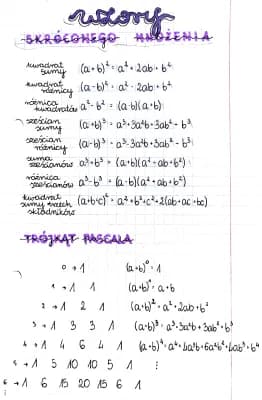 wzory
SKRÓCONEGO MNOŻENIA
kwadrat sumy (a+b)²=a²+2ab+b²
kwadrat różnicy (a-b)²=a²-2ab+b²
różnica kwadratów a²-b²=(a-b)(a+b)
sześcian sumy (a+b)³=a³+3a²b+3ab²+b³
sześcian różnicy (a-b)³=a³-3a²b+3ab²-b³
suma sześcianów a³+b³=(a+b)(a²-ab+b²)
różnica sześcianów a³-b³=(a-b)(a²+ab+b²)
kwadrat sumy trzech składników (a+b+c)²=a²+b²+c²+2(ab+ac+bc)
TRÓJKĄT PASCALA
0→1 (a+b)⁰=1
1→1 1 (a+b)¹=a+b
2→1 2 1 (a+b)²=a²+2ab+b²
3→1 3 3 1 (a+b)³=a³+3a²b+3ab²+b³
4→1 4 6 4 1 (a+b)⁴=a⁴+4a³b+6a²b²+4ab³+b⁴
5→1 5 10 10 5 1 ⋮
6→1 6 15 20 15 6 1